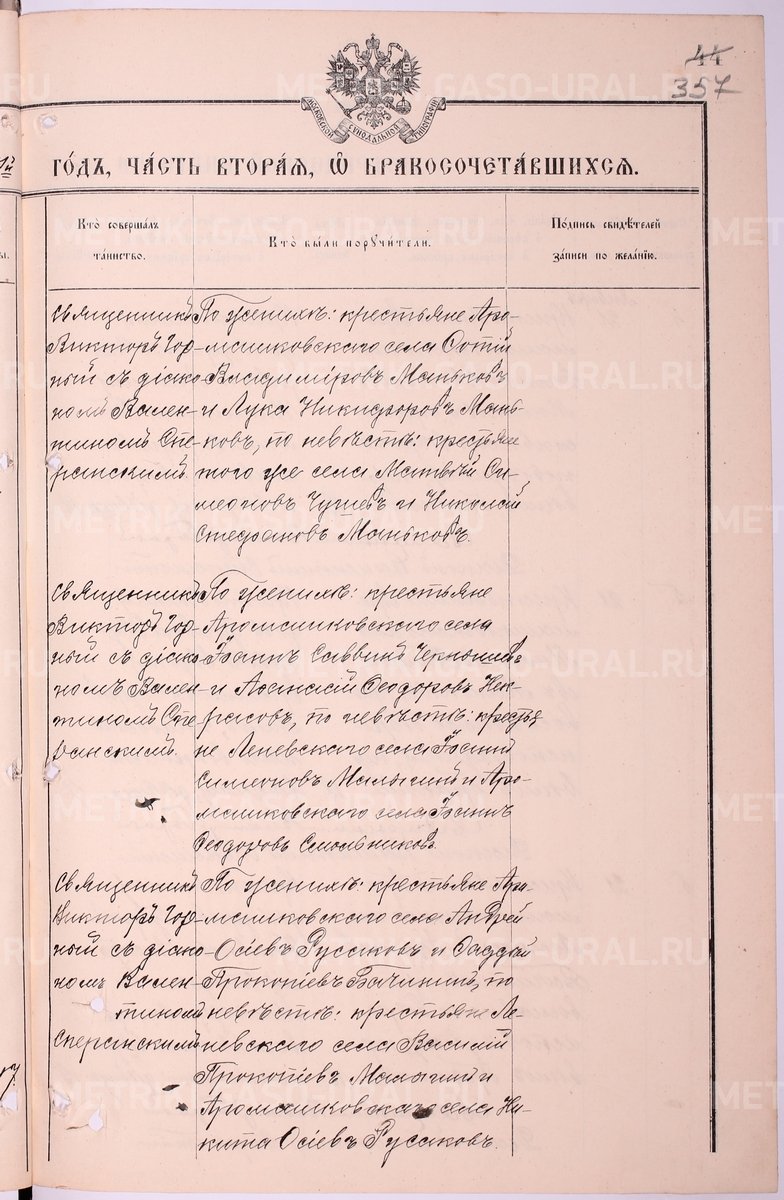 44
357
МОСКОВСКОЙ СѴНОДАЛЬНОЙ ТИПОГРАФІИ
ГО́ДЪ, ЧА́СТЬ ВТОРА́Я, Ѽ БРАКОСОЧЕТА́ВШИХСЯ.
Кто̀ соверша́лъ
та́инство.
Кто̀ бы́ли порꙋчи́тели.
По́дпись свидѣ́телей
за́писи по жела́нїю.
Священникъ
Викторъ Гор-
ный съ діако-
номъ Вален-
тиномъ Спе-
ранскимъ.
По женихѣ: крестьяне Аро-
машковскаго села Фотій
Владиміровъ Маньковъ
и Лука Никифоровъ Мань-
ковъ, по невѣстѣ: крестьяне
того же села Матвѣй Си-
меоновъ Чугаевъ и Николай
Стефановъ Маньковъ.
Священникъ
Викторъ Гор-
ный съ діако-
номъ Вален-
тиномъ Спе-
ранскимъ.
По женихѣ: крестьяне
Аромашковскаго села
Іоаннъ Саввинъ
и Аѳанасій Ѳеодоровъ Нек-
расовъ, по невѣстѣ: крестья-
не Леневскаго села Іоаннъ
Симеоновъ Малыгинъ и Аро-
машковскаго села Іоаннъ
Ѳеодоровъ Смольниковъ.
Священникъ
Викторъ Гор-
ный съ діако-
номъ Вален-
тиномъ
Сперанскимъ
По женихѣ: крестьяне Аро-
машковскаго села Андрей
Осіевъ Русаковъ и Фаддей
Прокопіевъ Бачининъ, по
невѣстѣ: крестьяне Ле-
невскаго села Василій
Прокопіевъ Малыгинъ и
Аромашковскаго села Ни-
кита Осіевъ Русаковъ.
METRIKI.GASO-URAL.RU